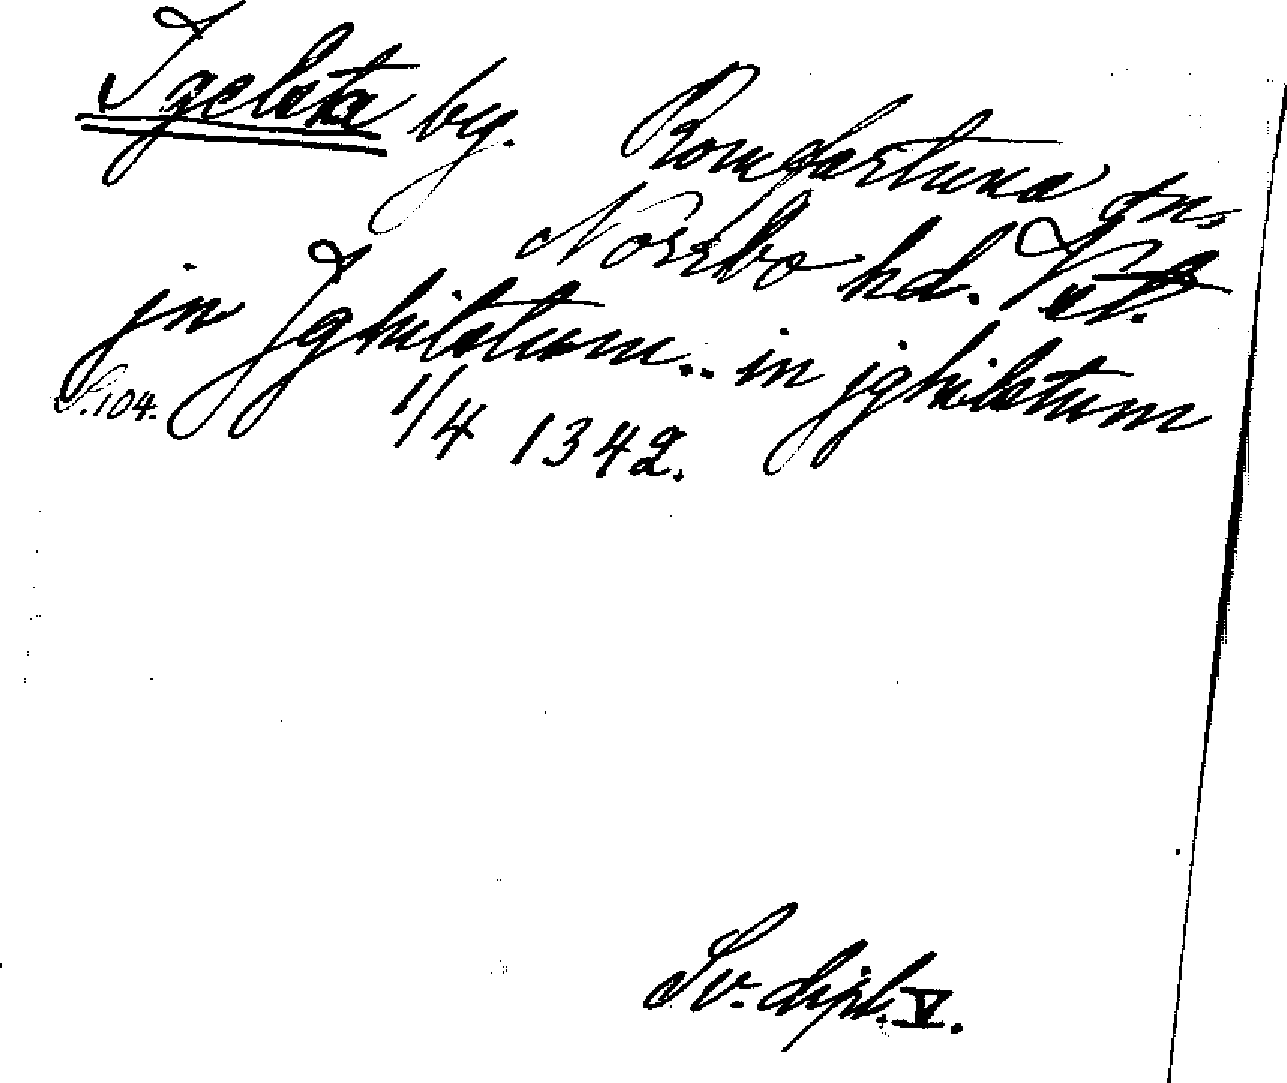 Igelsta by. Romfartuna sn.
Norrbo hd. Vstl.
jn Jghilstum.. in jghilstum
S. 104. 1/4 1342.
Sv. dipl. V.